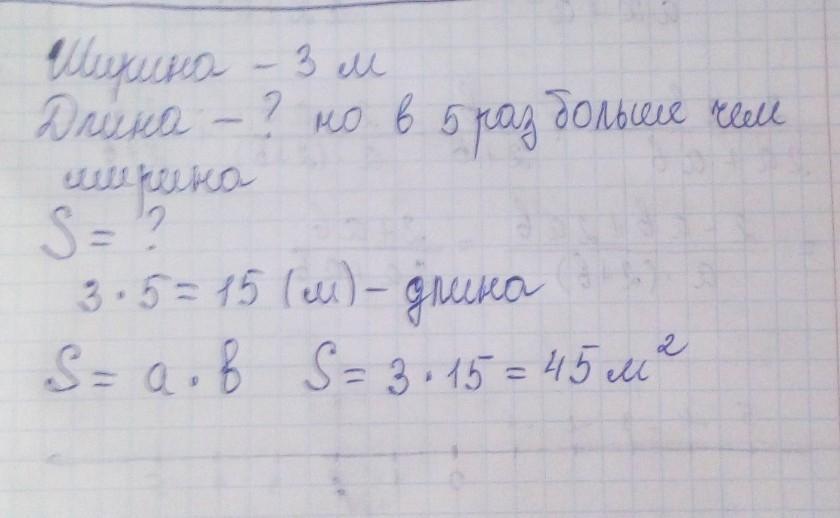 Ширина – 3 м
Длина – ? но в 5 раз больше чем
ширина
S = ?
3 · 5 = 15 (м) – длина
S = а · в   S = 3 · 15 = 45 м²